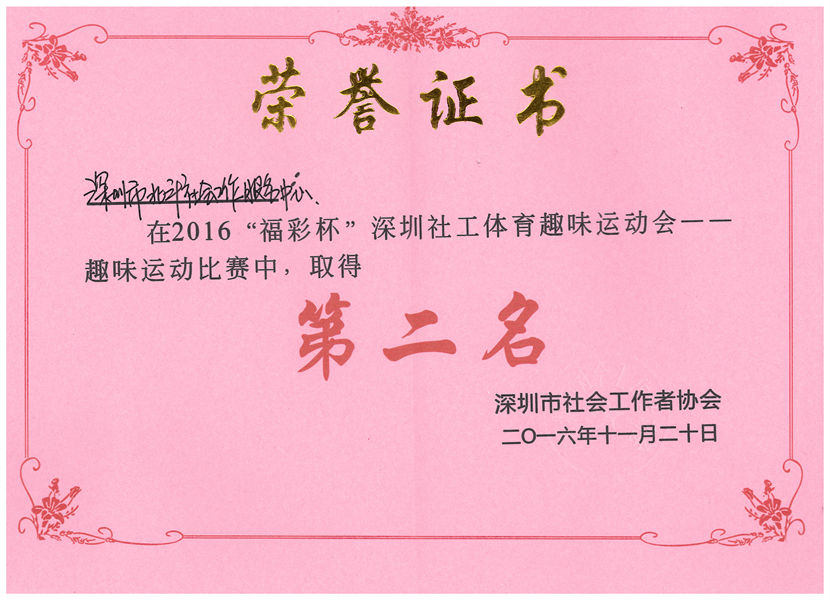 荣誉证书
深圳市北斗社会工作服务中心、
在2016“福彩杯”深圳社工体育趣味运动会——
趣味运动比赛中，取得
第二名
深圳市社会工作者协会
二〇一六年十一月二十日